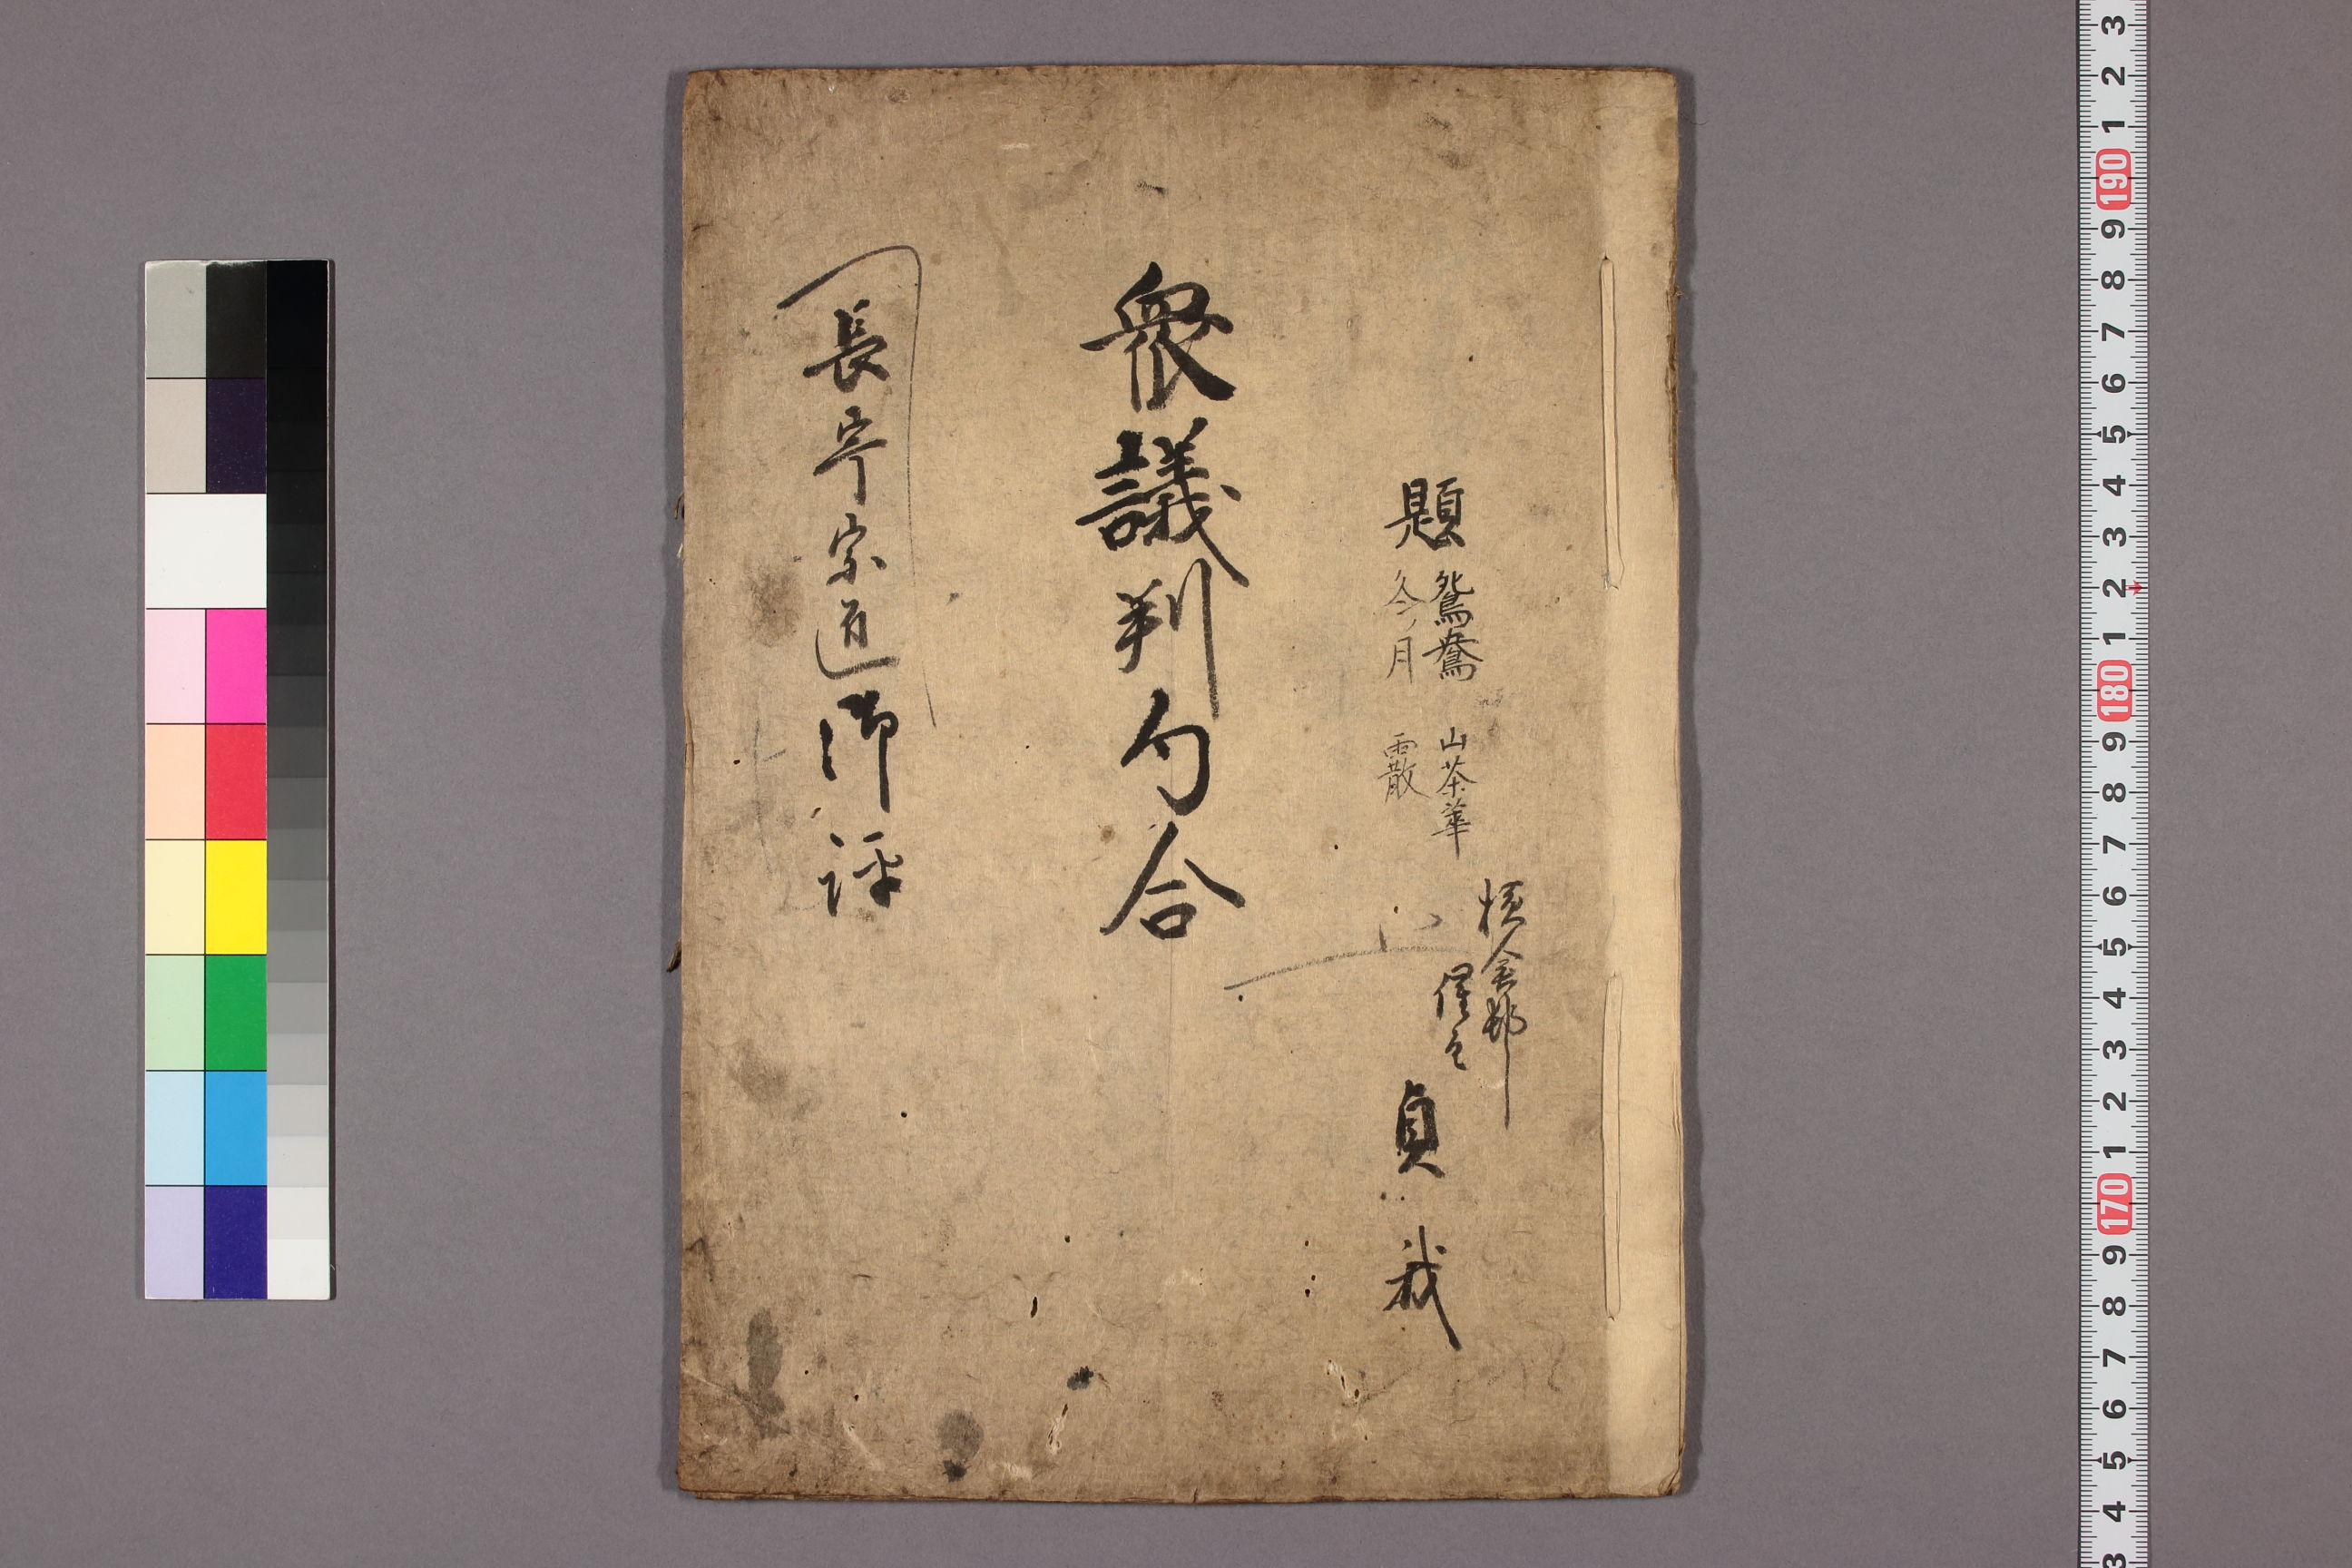 題 鴛鴦 山茶華
冬月 霰
催主
貞哉
衆議判句合
長寧宗匠御評
3
2
1
190
9
8
7
6
5
4
3
2
1
180
9
8
7
6
5
4
3
2
1
170
9
8
7
6
5
4
3